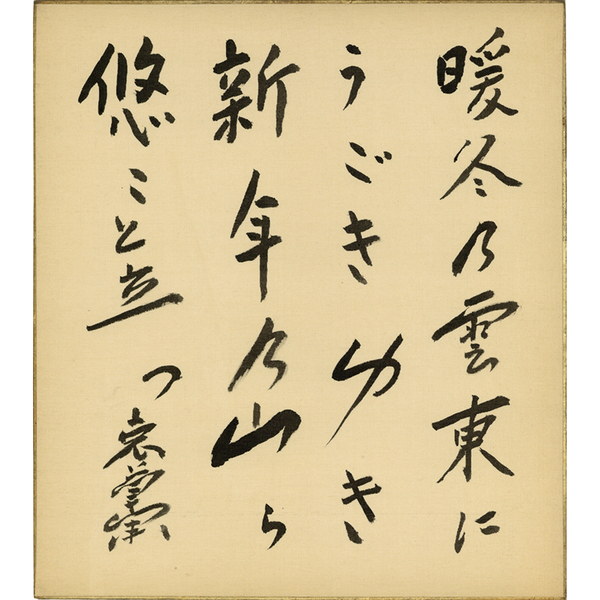 暖冬乃雲東に
うごきゆき
新年の山ら
悠こと立つ